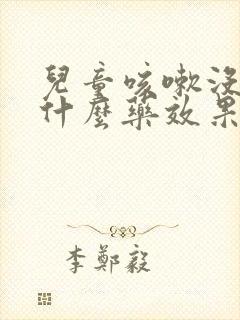 兒童咳嗽沒
什麼藥效果
李鄭毅